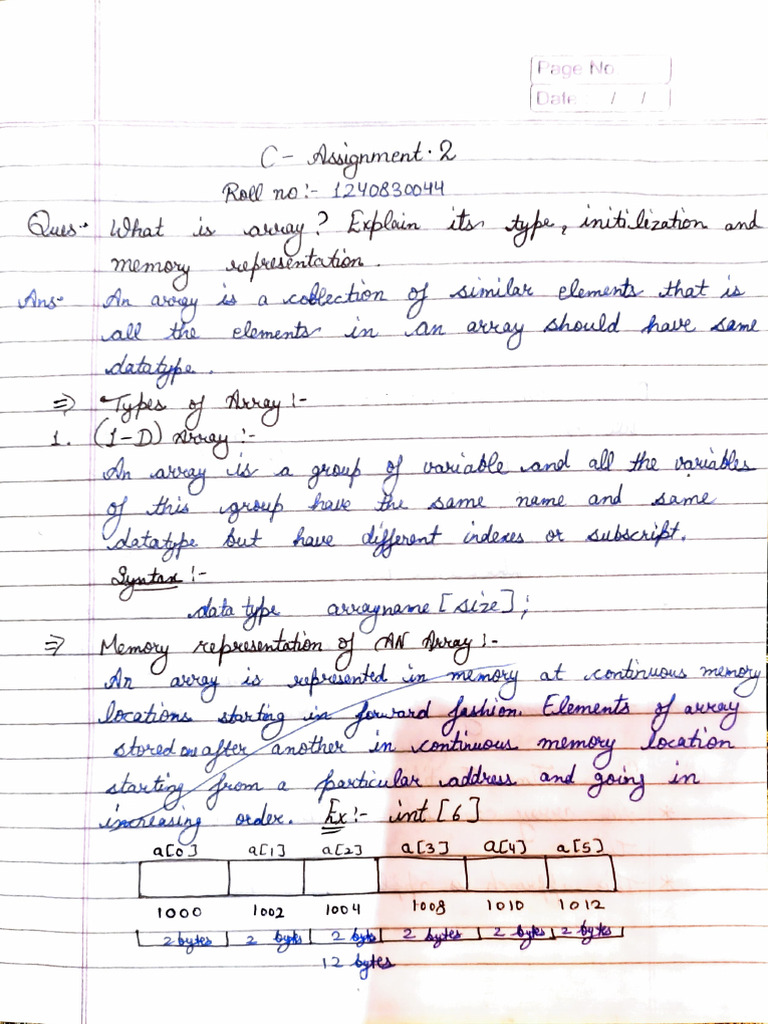 Page No
Date / /
C - Assignment. 2
Roll no:- 1240830044
Ques- What is array? Explain its type, initilization and
memory representation.
Ans- An array is a collection of similar elements that is
all the elements in an array should have same
datatype.
⇒ Types of Array :-
1. (1-D) Array :-
An array is a group of variable and all the variables
of this group have the same name and same
datatype but have different indexes or subscript.
Syntax :-
data type arrayname [size];
⇒ Memory representation of AN Array :-
An array is represented in memory at continuous memory
locations starting in forward fashion. Elements of array
stored one after another in continuous memory location
starting from a particular address and going in
increasing order. Ex :- int [6]
a[0] a[1] a[2] a[3] a[4] a[5]
1000 1002 1004 1008 1010 1012
2 bytes 2 bytes 2 bytes 2 bytes 2 bytes 2 bytes
12 bytes